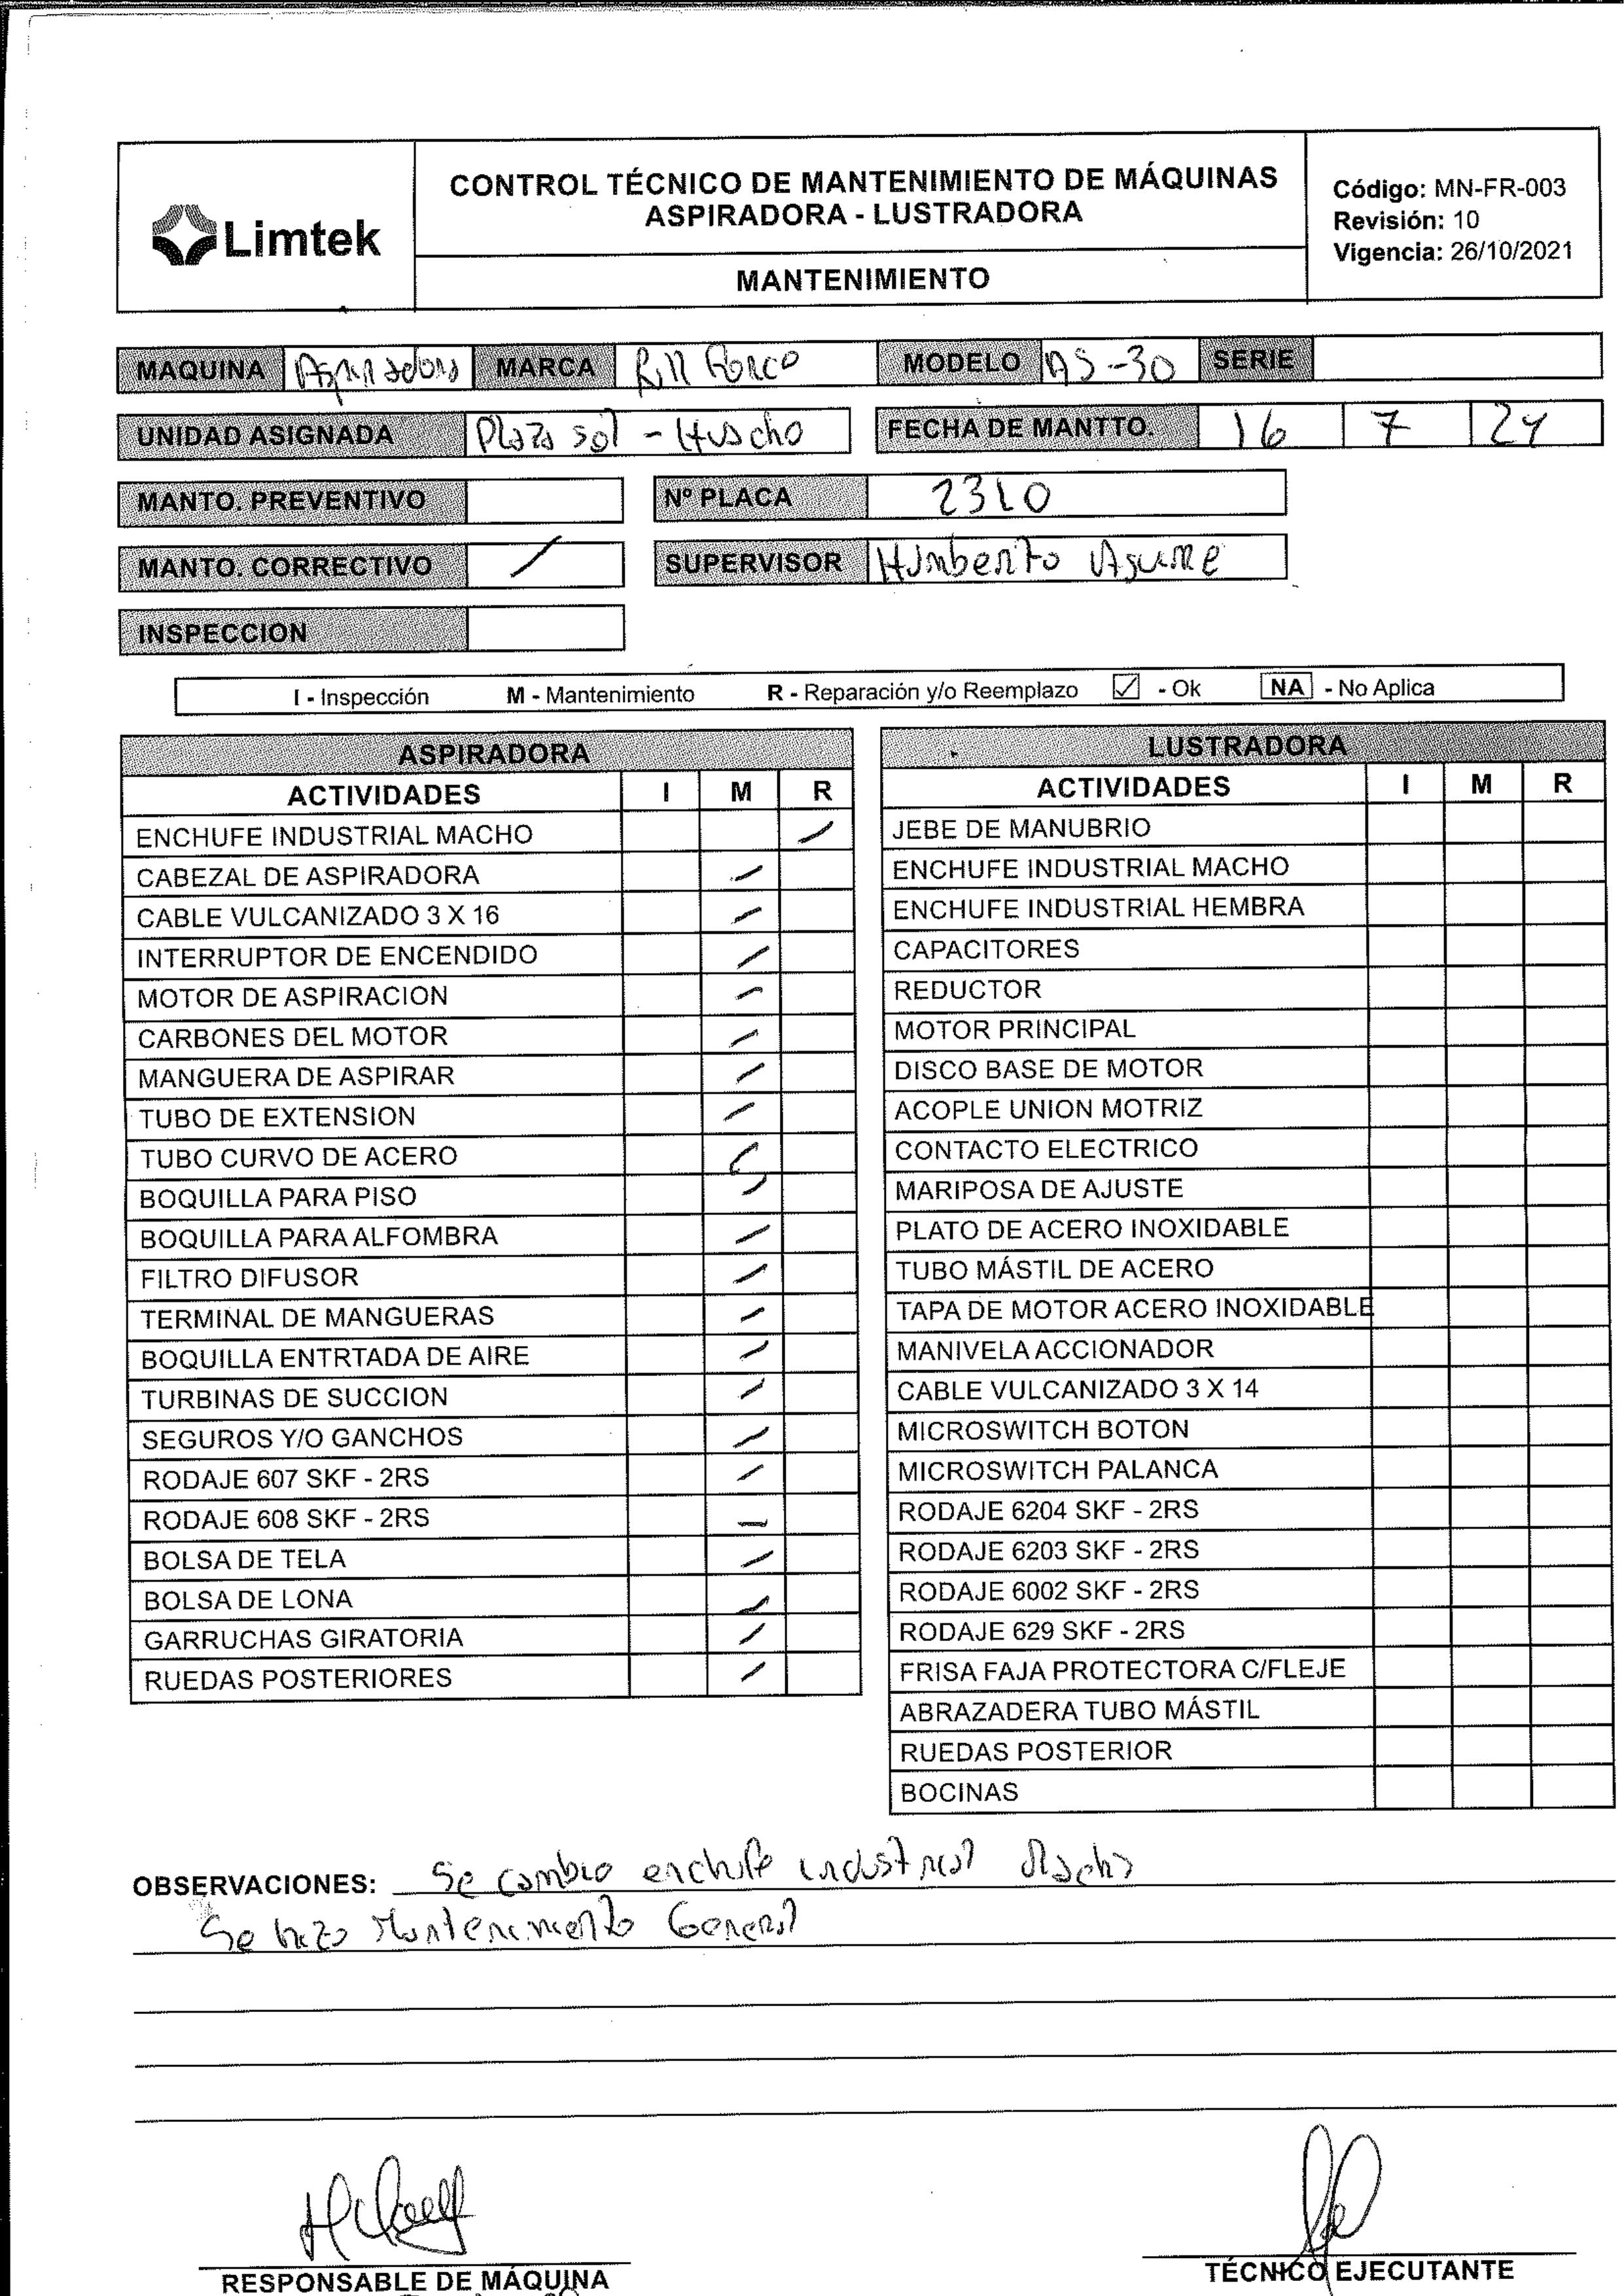 Limtek
CONTROL TÉCNICO DE MANTENIMIENTO DE MÁQUINAS
ASPIRADORA - LUSTRADORA
MANTENIMIENTO
Código: MN-FR-003
Revisión: 10
Vigencia: 26/10/2021
MAQUINA Aspiradora MARCA MODELO AS-30 SERIE
UNIDAD ASIGNADA Plaza sol - Huacho FECHA DE MANTTO. 16 7 24
MANTO. PREVENTIVO Nº PLACA 2310
MANTO. CORRECTIVO / SUPERVISOR Humberto Aguirre
INSPECCION
I - Inspección M - Mantenimiento R - Reparación y/o Reemplazo ☑ - Ok NA - No Aplica
ASPIRADORA
ACTIVIDADES I M R
ENCHUFE INDUSTRIAL MACHO /
CABEZAL DE ASPIRADORA /
CABLE VULCANIZADO 3 X 16 /
INTERRUPTOR DE ENCENDIDO /
MOTOR DE ASPIRACION /
CARBONES DEL MOTOR /
MANGUERA DE ASPIRAR /
TUBO DE EXTENSION /
TUBO CURVO DE ACERO /
BOQUILLA PARA PISO /
BOQUILLA PARA ALFOMBRA /
FILTRO DIFUSOR /
TERMINAL DE MANGUERAS /
BOQUILLA ENTRTADA DE AIRE /
TURBINAS DE SUCCION /
SEGUROS Y/O GANCHOS /
RODAJE 607 SKF - 2RS /
RODAJE 608 SKF - 2RS /
BOLSA DE TELA /
BOLSA DE LONA /
GARRUCHAS GIRATORIA /
RUEDAS POSTERIORES /
LUSTRADORA
ACTIVIDADES I M R
JEBE DE MANUBRIO
ENCHUFE INDUSTRIAL MACHO
ENCHUFE INDUSTRIAL HEMBRA
CAPACITORES
REDUCTOR
MOTOR PRINCIPAL
DISCO BASE DE MOTOR
ACOPLE UNION MOTRIZ
CONTACTO ELECTRICO
MARIPOSA DE AJUSTE
PLATO DE ACERO INOXIDABLE
TUBO MÁSTIL DE ACERO
TAPA DE MOTOR ACERO INOXIDABLE
MANIVELA ACCIONADOR
CABLE VULCANIZADO 3 X 14
MICROSWITCH BOTON
MICROSWITCH PALANCA
RODAJE 6204 SKF - 2RS
RODAJE 6203 SKF - 2RS
RODAJE 6002 SKF - 2RS
RODAJE 629 SKF - 2RS
FRISA FAJA PROTECTORA C/FLEJE
ABRAZADERA TUBO MÁSTIL
RUEDAS POSTERIOR
BOCINAS
OBSERVACIONES: Se cambio enchufe industrial Macho
Se hizo Mantenimiento General
RESPONSABLE DE MÁQUINA
TÉCNICO EJECUTANTE